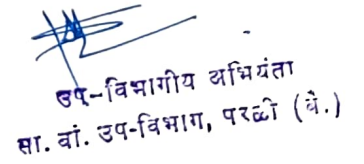 उप-विभागीय अभियंता
सा. बां. उप-विभाग, परळी (वै.)